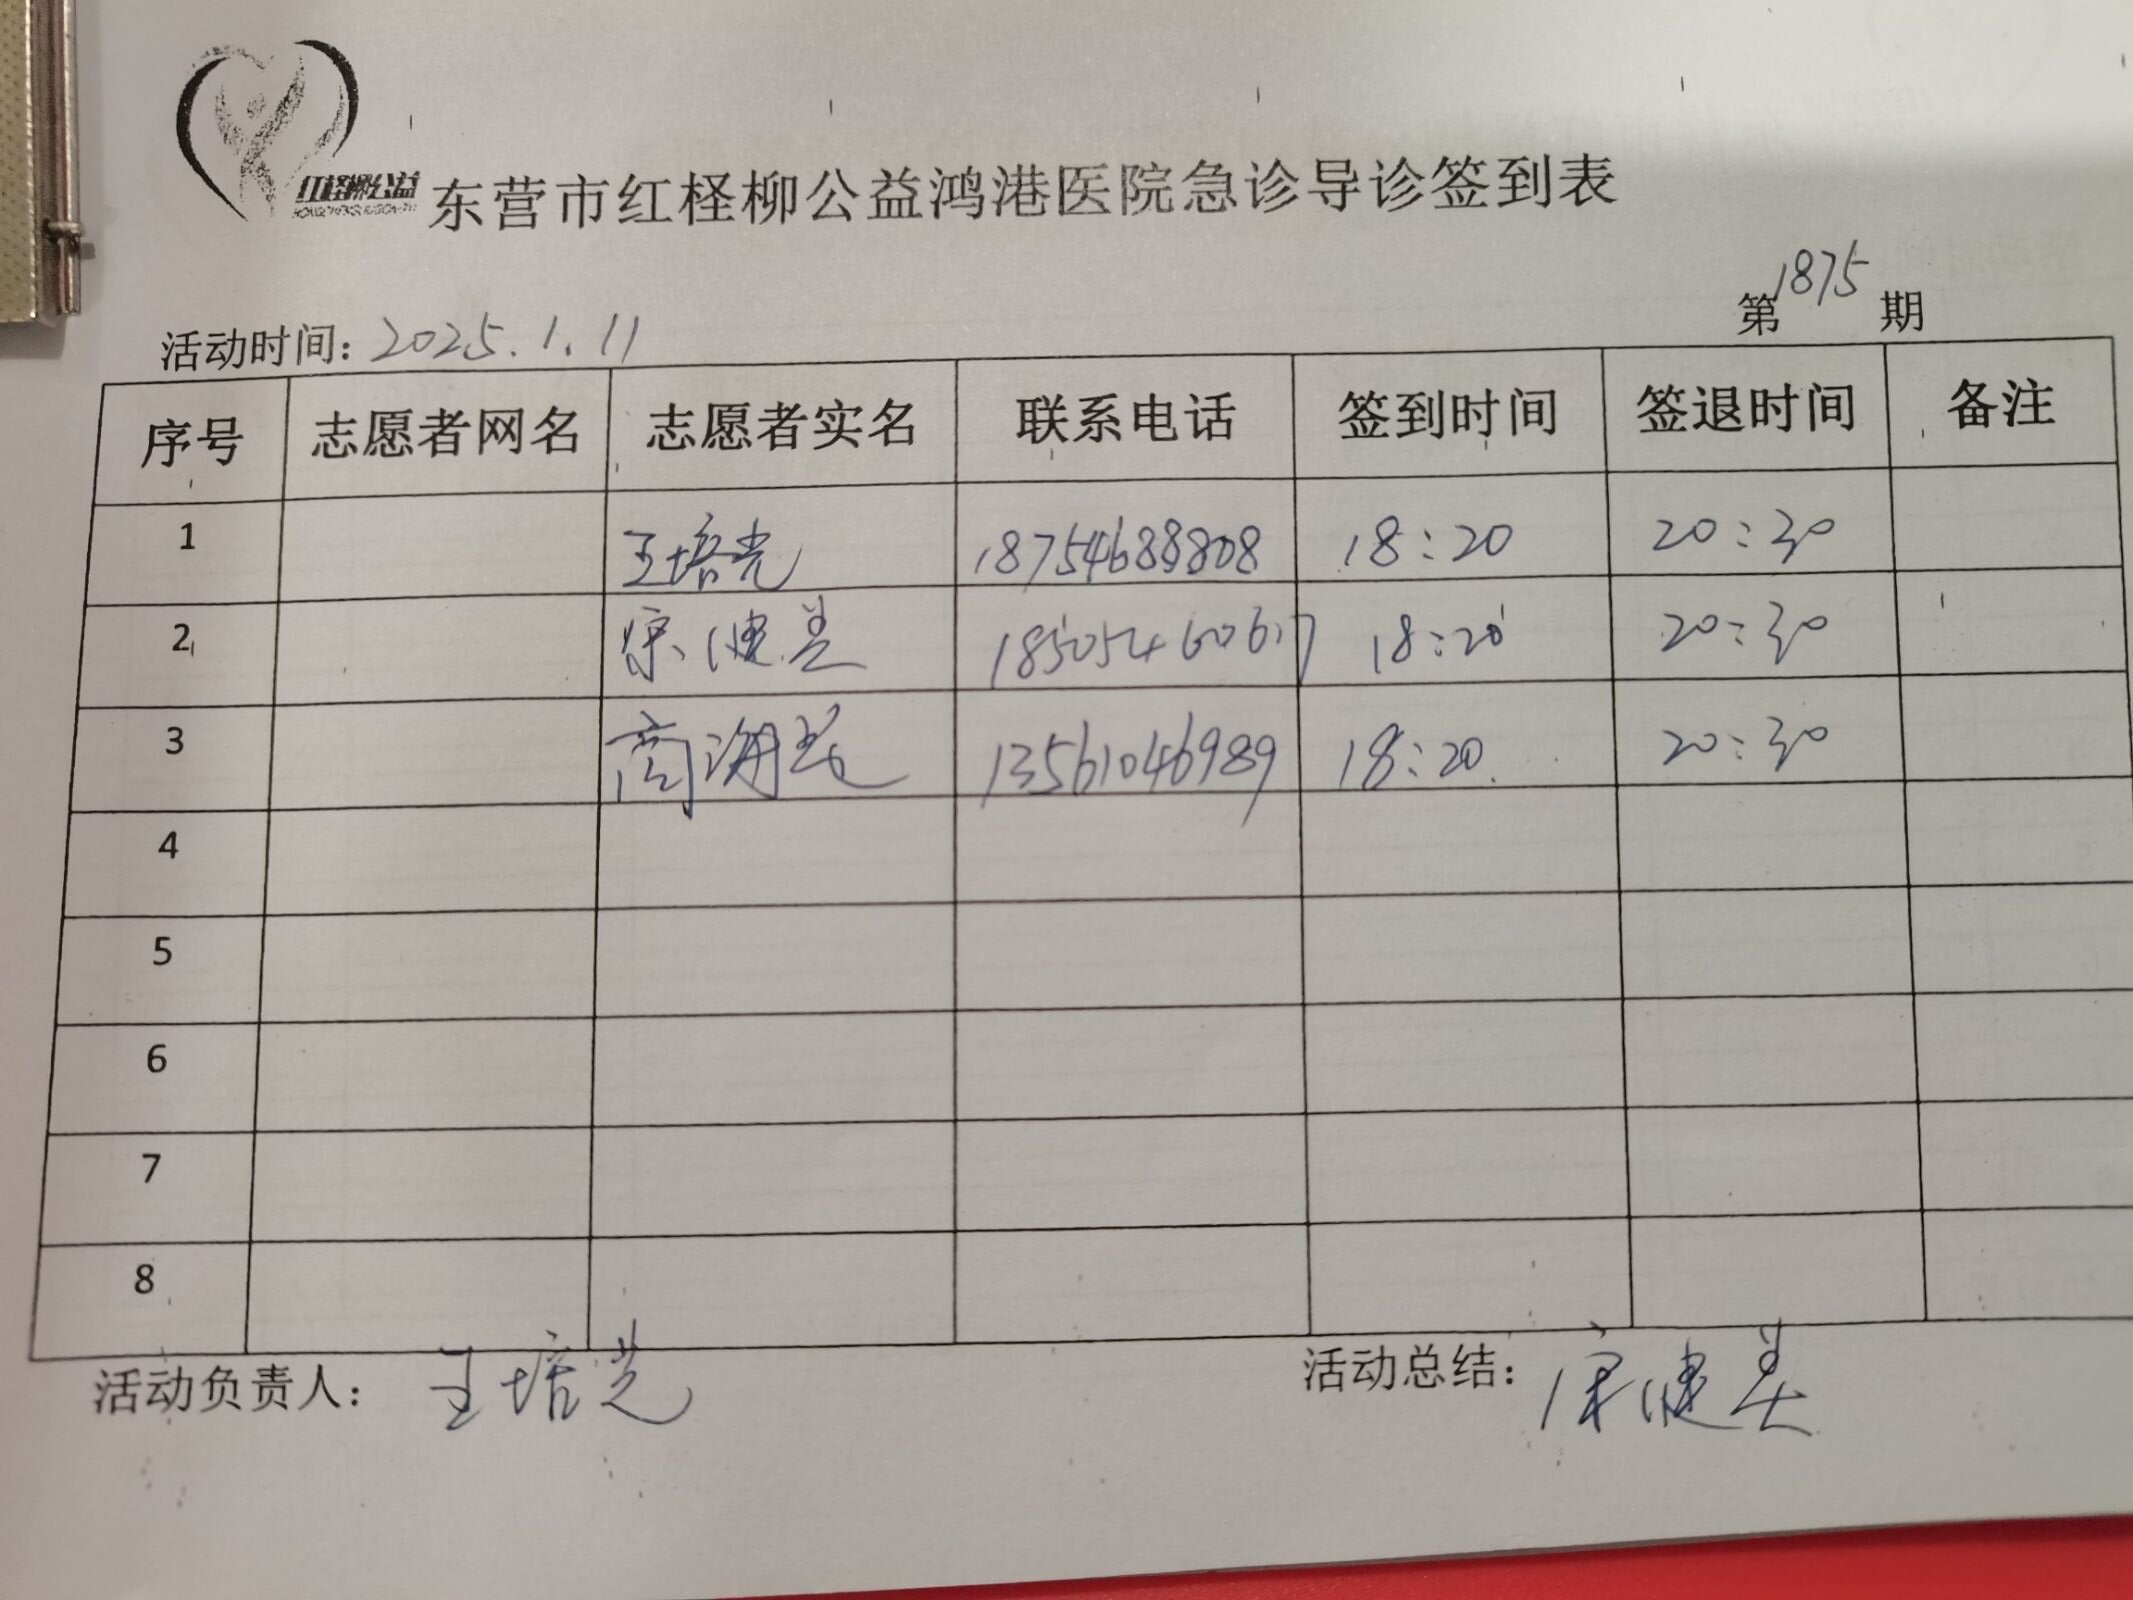 红柽柳公益
东营市红柽柳公益鸿港医院急诊导诊签到表
第1875期
活动时间：2025.1.11
序号 志愿者网名 志愿者实名 联系电话 签到时间 签退时间 备注
1 王培光 18754688808 18:20 20:30
2 宋健美 18505460617 18:20 20:30
3 商海 13561046989 18:20 20:30
4
5
6
7
8
活动负责人： 王培光 活动总结： 宋健美